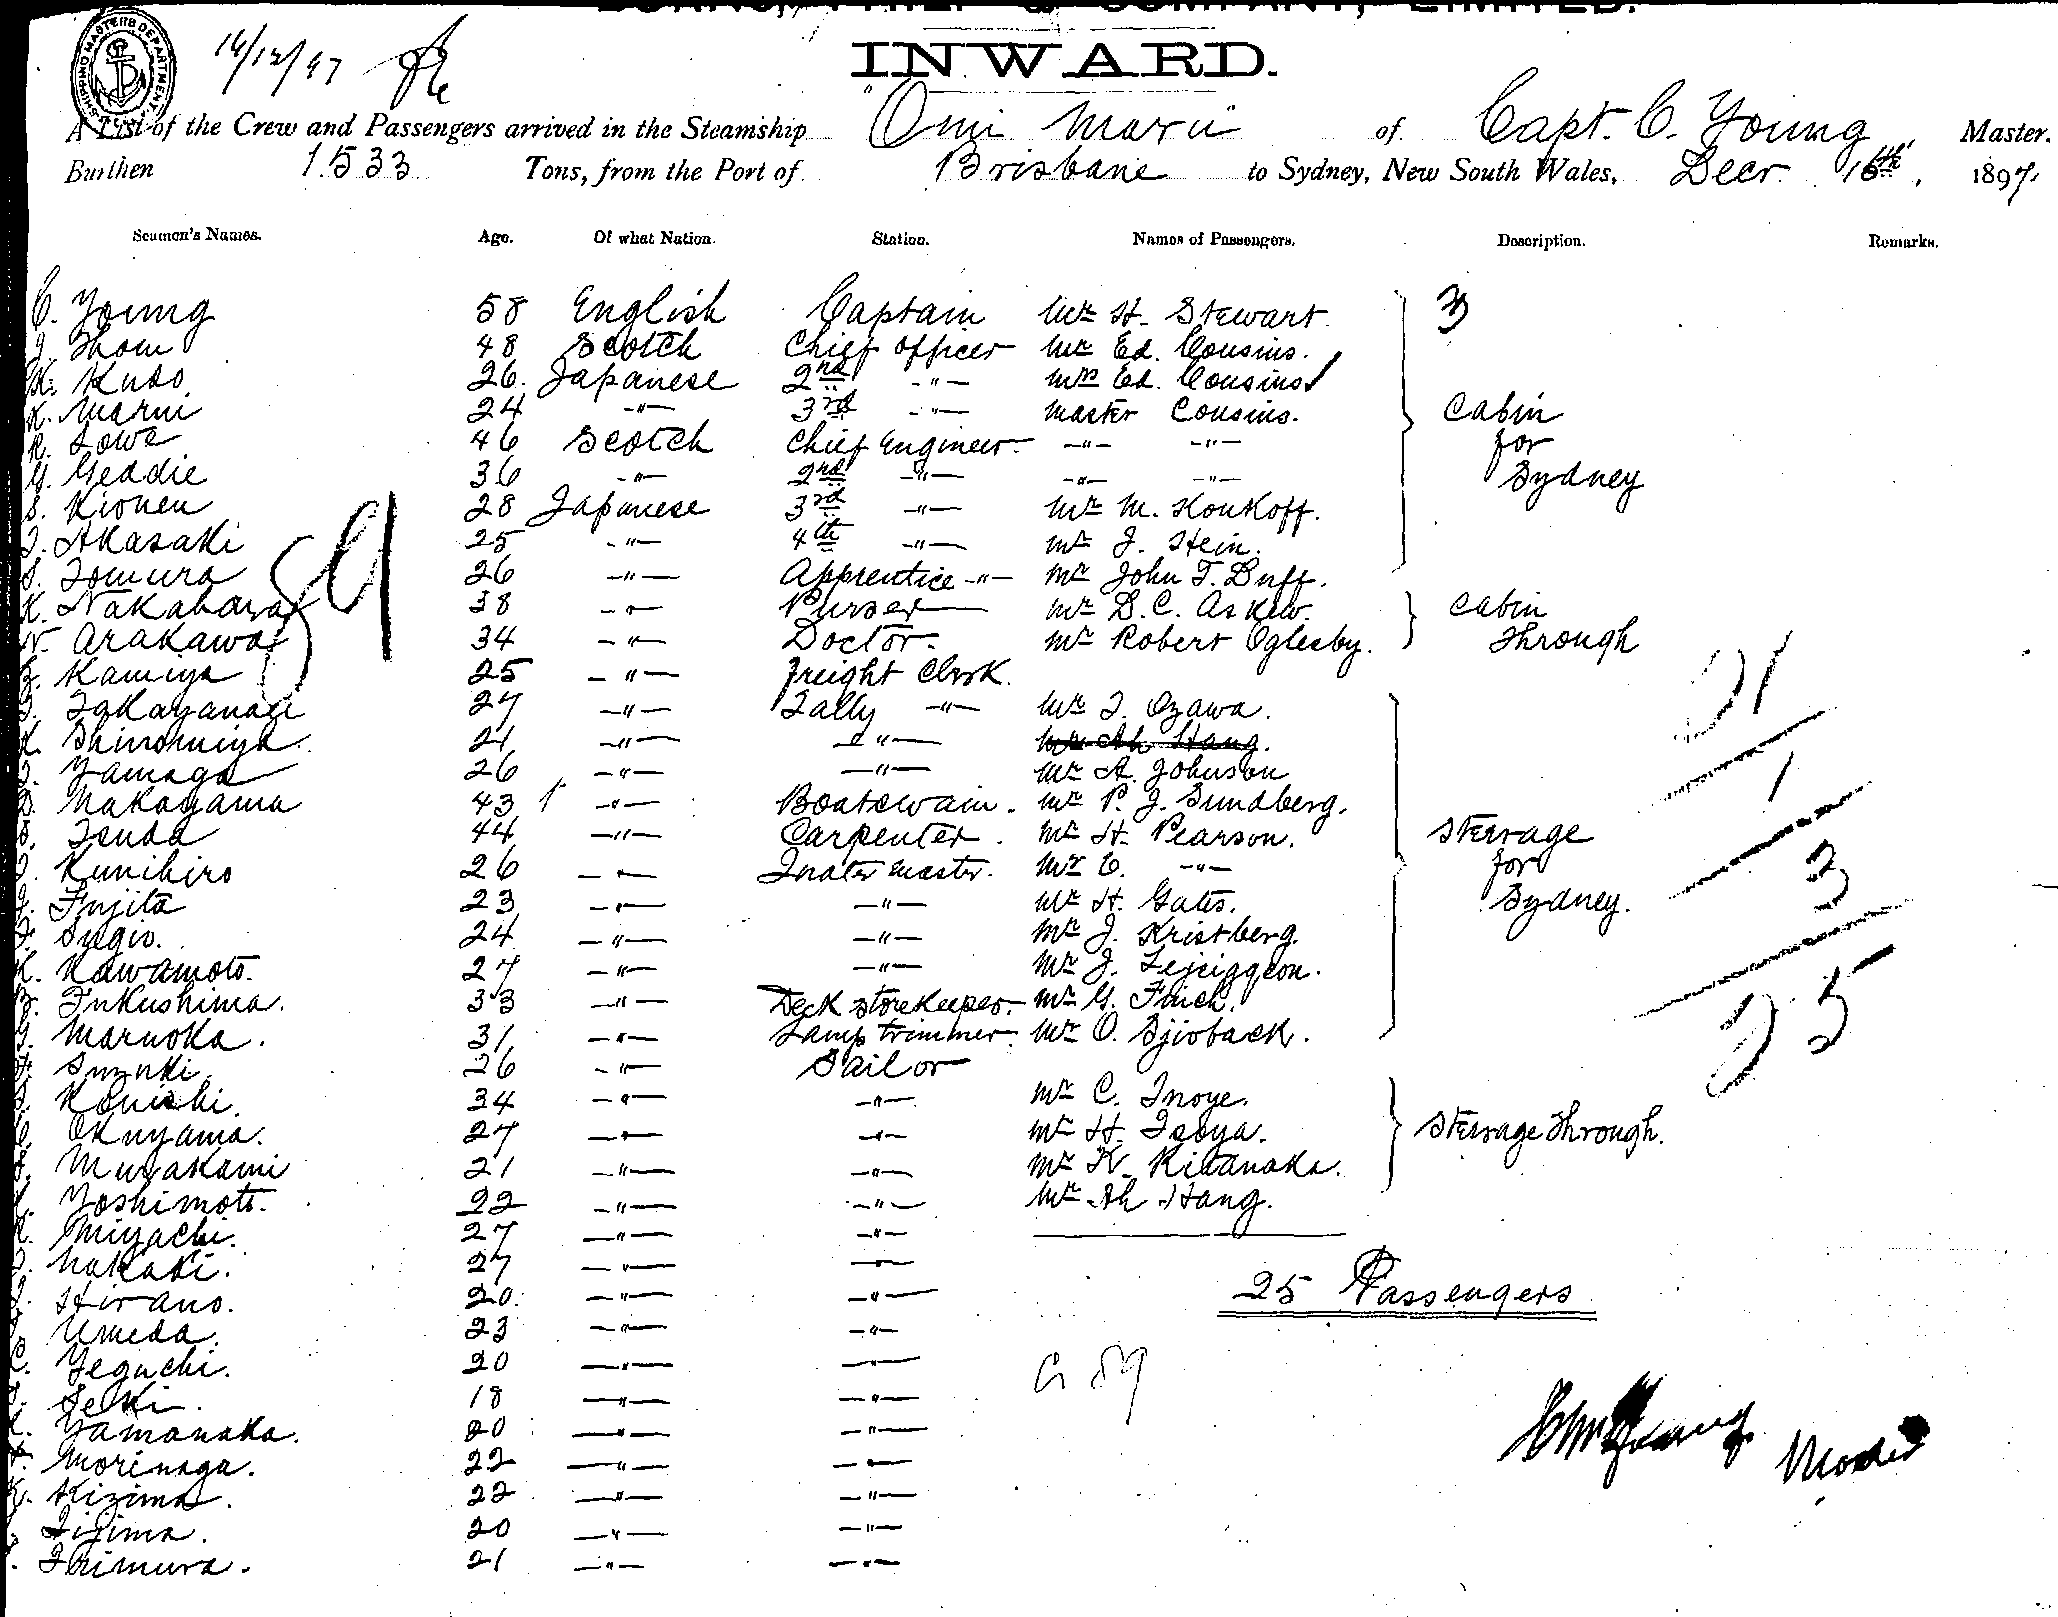 SHIPPING MASTERS DEPARTMENT
16/12/97
INWARD.
A List of the Crew and Passengers arrived in the Steamship Omi Maru of Capt. C. Young Master.
Burthen 1533 Tons, from the Port of Brisbane to Sydney, New South Wales, Decr 16th, 1897.
Seamen's Names. Age. Of what Nation. Station. Names of Passengers. Description. Remarks.
C. Young 58 English Captain Mr H. Stewart 3
J. Thom 48 Scotch Chief Officer Mr Ed. Cousins.
Kudo 26. Japanese 2nd -"- Mrs Ed. Cousins
K. Marui 24 -"- 3rd -"- Master Cousins. Cabin
R. Lowe 46 Scotch Chief Engineer. -"- -"- for
G. Geddie 36 -"- 2nd -"- -"- -"- Sydney
S. Kionen 28 Japanese 3rd -"- Mr M. Koukoff.
Akasaki 25 -"- 4th -"- Mr J. Stein.
Tomura 26 -"- Apprentice -"- Mr John T. Duff.
K. Nakahawa 38 -"- Purser Mr D. C. Askew. Cabin
59
N. Arakawa 34 -"- Doctor. Mr Robert Oglesby. Through
Kamiya 25 -"- Freight Clerk.
Takayanagi 27 -"- Tally -"- Mr T. Ozawa. 21
Shinomiya. 21 -"- -"- Mr Ah Hang.
Yamaga 26 -"- -"- Mr A. Johnson 1
Nakayama 43 -"- Boatswain. Mr P. J. Sundberg.
Tsuda 44 -"- Carpenter. Mr H. Pearson. Steerage
Kunihiro 26 -"- master. Mr C. -"- for 3
Fujita 23 -"- -"- Mr H. Gates. Sydney.
Sugio. 24 -"- -"- Mr J. Kristberg.
K. Kawamoto. 27 -"- -"- Mr J. 25
Fukushima. 33 -"- Deck storekeeper. Mr G. Finch.
Maruoka. 31 -"- Lamp trimmer. Mr O. Sjioback.
Suzuki. 26 -"- Sailor
Konishi. 34 -"- -"- Mr C. Inoye.
Okuyama. 27 -"- -"- Mr H. Isoya. Steerage Through.
Murakami 21 -"- -"- Mr K. Kitanaka.
Yoshimoto. 22 -"- -"- Mr Ah Hang.
Miyachi. 27 -"- -"-
Nakaki. 27 -"- -"-
Hirano. 20. -"- -"- 25 Passengers
Umeda. 23 -"- -"-
Yeguchi. 20 -"- -"- 59
Seki. 18 -"- -"-
Yamanaka. 20 -"- -"- Young Master
Morinaga. 22 -"- -"-
K. Kizima. 22 -"- -"-
Iijima. 20 -"- -"-
Irimura. 21 -"- -"-